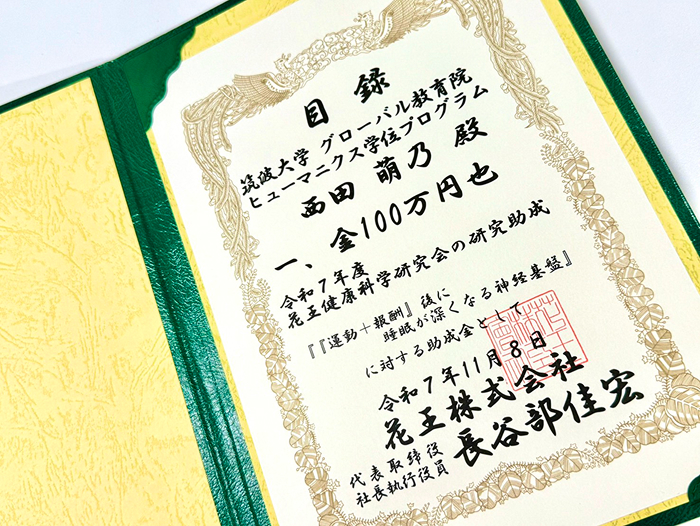 目録
筑波大学 グローバル教育院
ヒューマニクス学位プログラム
西田 萌乃 殿
一、金100万円也
令和7年度
花王健康科学研究会の研究助成
『『運動+報酬』後に
睡眠が深くなる神経基盤』
に対する助成金として
令和7年11月8日
花王株式会社
代表取締役
社長執行役員 長谷部佳宏